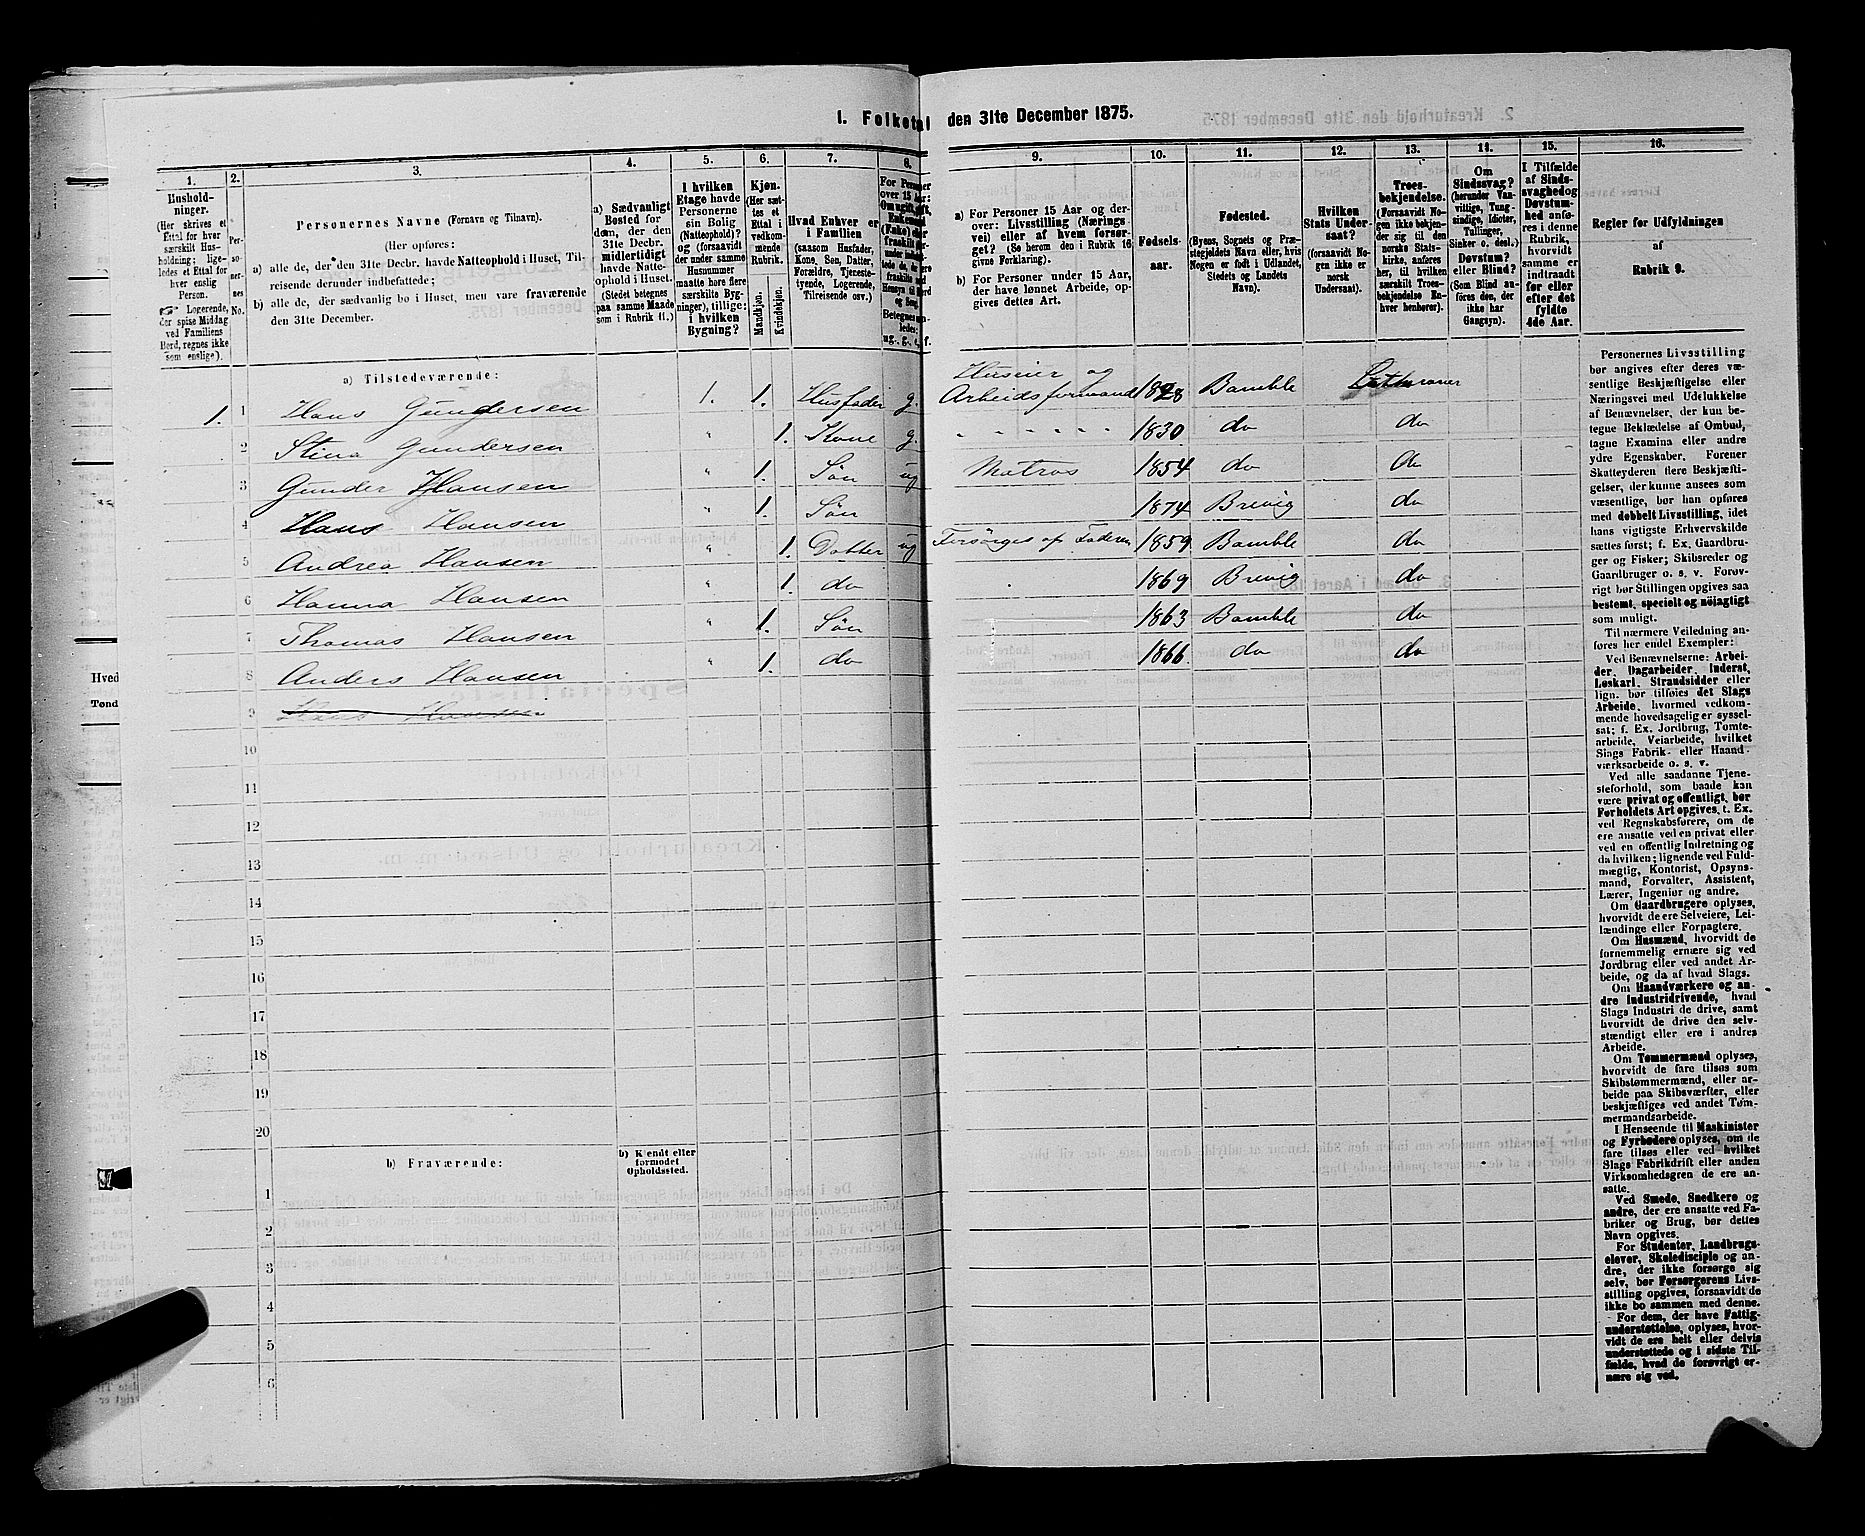 I. Folketal den 31te December 1875.
1.
2.
3.
4.
5.
6.
7.
8.
9.
10.
11.
12.
13.
14.
15.
16.
Husholdninger.
(Her skrives et Ettal for hver særskilt Husholdning; ligeledes et Ettal for hver enslig Person.
Logerende, der spise Middag ved Familiens Bord, regnes ikke som enslige).
Personernes No.
Personernes Navne (Fornavn og Tilnavn).
(Her opføres:
a) alle de, der den 31te Decbr. havde Natteophold i Huset, Tilreisende derunder indbefattede;
b) alle de, der sædvanlig bo i Huset, men vare fraværende den 31te December.
a) Sædvanligt Bosted for dem, der den 31te Decbr. midlertidigt havde Natteophold i Huset.
(Stedet betegnes paa samme Maade som i Rubrik 11.)
I hvilken Etage havde Personerne sin Bolig (Natteophold)? og (forsaavidt der under samme Husnummer maatte høre flere særskilte Bygninger), tillige: i hvilken Bygning?
Kjøn. (Her sættes et Ettal i vedkommende Rubrik.
Mandkjøn.
Kvindekjøn.
Hvad Enhver er i Familien
(saasom Husfader, Kone, Søn, Datter, Forældre, Tjenestetyende, Logerende, Tilreisende osv.)
a) For Personer 15 Aar og derover: Livsstilling (Næringsvei) eller af hvem forsørget? (Se herom den i Rubrik 16 givne Forklaring).
b) For Personer under 15 Aar, der have lønnet Arbeide, opgives dettes Art.
Fødselsaar.
Fødested.
(Byens, Sognets og Præstegjeldets Navn eller, hvis Nogen er født i Udlandet, Stedets og Landets Navn).
Hvilken Stats Undersaat?
(forsaavidt Nogen ikke er norsk Undersaat).
Troesbekjendelse.
(Forsaavidt Nogen ikke bekjender sig til den norske Statskirke, anføres her, til hvilken særskilt Troesbekjendelse Enhver henhører).
Om Sindssvag? (herunder Vanvittige, Tungsindige, Idioter, Tullinger, Sinker o. desl.). Døvstum? eller Blind? (Som Blind anføres den, der ikke har Gangsyn).
I Tilfælde af Sindssvaghed og Døvstumhed anføres i denne Rubrik, hvorvidt samme er indtraadt før eller efter det fyldte 4de Aar.
Regler for Udfyldningen af Rubrik 9.
a) Tilstedeværende:
1. 1 Hans Gundersen 1. 1. Husfader g. Huseier og Arbeidsformand 1828 Bamble Lutheraner
2 Stina Gundersen " 1. Kone g. " " " " " " 1830 do do
3 Gunder Hansen " 1. Søn ug Matros 1854 do do
4 Hans Hansen " 1. Søn 1874 Brevig do
5 Andrea Hansen " 1. Datter ug Forsørges af Faderen 1859 Bamble do
6 Hanna Hansen " 1. do 1869 Brevig do
7 Thomas Hansen " 1. Søn 1863 Bamble do
8 Anders Hansen " 1. do 1866 do do
9 Hans Hansen
10
11
12
13
14
15
16
17
18
19
20
b) Fraværende:
b) Kjendt eller formodet Opholdssted.
1
2
3
4
5
6
Personernes Livsstilling
bør angives efter deres væ-
sentlige Beskjæftigelse eller
Næringsvei med Udelukkelse
af Benævnelser, der kun be-
tegne Beklædelse af Ombud,
tagne Examina eller andre
ydre Egenskaber. Forener
Skatteyderen flere Beskjæfti-
gelser, der kunne ansees som
væsentlige, bør han opføres
med dobbelt Livsstilling, idet
hans vigtigste Erhvervskilde
sættes først; f. Ex. Gaardbru-
ger og Fisker; Skibsreder og
Gaardbruger o. s. v. Forøv-
rigt bør Stillingen opgives saa
bestemt, specielt og nöiagtigt
som muligt.
Til nærmere Veiledning an-
føres her endel Exempler:
Ved Benævnelserne: Arbei-
der, Dagarbeider, Inderst,
Løskarl, Strandsidder eller
lign. bør tilføies det Slags
Arbeide, hvormed vedkom-
mende hovedsagelig er syssel-
sat; f. Ex. Jordbrug, Tomte-
arbeide, Veiarbeide, hvilket
Slags Fabrik- eller Haand-
værksarbeide o. s. v.
Ved alle saadanne Tjene-
steforhold, som baade kan
være privat og offentligt, bør
Forholdets Art opgives, t. Ex.
ved Regnskabsførere, om de
ere ansatte ved en privat eller
ved en offentlig Indretning og
da hvilken; lignende ved Fuld-
mægtig, Kontorist, Opsyns-
mand, Forvalter, Assistent,
Lærer, Ingeniør og andre.
Om Gaardbrugere oplyses,
hvorvidt de ere Selveiere, Lei-
lændinge eller Forpagtere.
Om Husmænd, hvorvidt de
fornemmelig ernære sig ved
Jordbrug eller ved andet Ar-
beide, og da af hvad Slags.
Om Haandværkere og an-
dre Industridrivende, hvad
Slags Industri de drive, samt
hvorvidt de drive den selv-
stændigt eller ere i andres
Arbeide.
Om Tømmermænd oplyses,
hvorvidt de fare tilsøs som
Skibstømmermænd, eller ar-
beide paa Skibsværfter, eller
beskjæftiges ved andet Tøm-
mermandsarbeide.
I Henseende til Maskinister
og Fyrbødere oplyses, om de
fare tilsøs eller ved hvilket
Slags Fabrikdrift eller anden
Virksomhedsgren de ere an-
satte.
Ved Smede, Snedkere og
andre, der ere ansatte ved Fa-
briker og Brug, bør dettes
Navn opgives.
For Studenter, Landbrugs-
elever, Skoledisciple og an-
dre, der ikke forsørge sig
selv, bør Forsørgerens Livs-
stilling opgives, forsaavidt de
ikke bo sammen med denne.
For dem, der have Fattig-
understøttelse, oplyses, hvor-
vidt de ere helt eller delvis
understøttede og i sidste Til-
fælde, hvad de forøvrigt er-
nære sig ved.